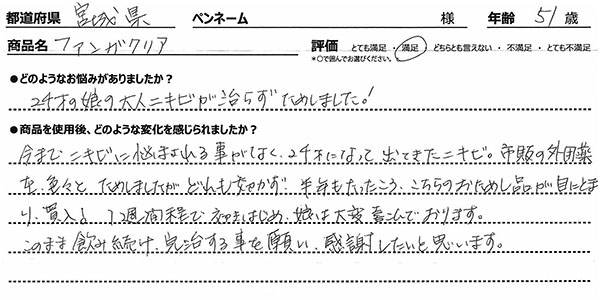 都道府県 宮城県 ペンネーム 様 年齢 51 歳
商品名 ファンガクリア 評価 とても満足 ・ 満足 ・ どちらとも言えない ・ 不満足 ・ とても不満足
*○で囲んでお選びください。
●どのようなお悩みがありましたか？
24才の娘の大人ニキビが治らずためしました！
●商品を使用後、どのような変化を感じられましたか？
今までニキビに悩まされる事がなく、24才になって出てきたニキビ。市販の外用薬
を、色々とためしましたがどれも効かず、半年もたったころ、こちらのおためし品が目にとま
り、購入。1週間程で効きはじめ、娘は大変喜んでおります。
このまま飲み続け、完治する事を願い、感謝したいと思います。